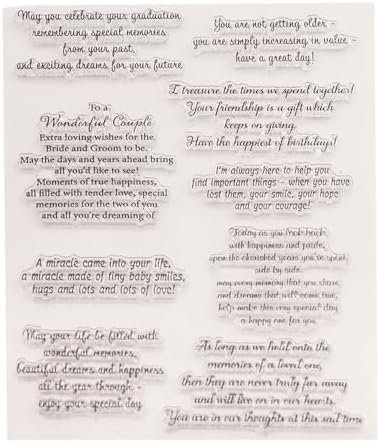 May you celebrate your graduation
remembering special memories
from your past,
and exciting dreams for your future
You are not getting older –
you are simply increasing in value –
have a great day!
I treasure the times we spend together!
Your friendship is a gift which
keeps on giving.
Have the happiest of birthdays!
To a
Wonderful Couple
Extra loving wishes for the
Bride and Groom to be.
May the days and years ahead bring
all you'd like to see!
Moments of true happiness,
all filled with tender love, special
memories for the two of you
and all you're dreaming of
I'm always here to help you
find important things – when you have
lost them, your smile, your hope
and your courage!
Today as you look back
with happiness and pride,
upon the cherished years you've spent
side by side.
may every memory that you share,
and dreams that will come true,
help make this very special day
a happy one for you
A miracle came into your life,
a miracle made of tiny baby smiles,
hugs and lots and lots of love!
May your life be filled with
wonderful memories,
beautiful dreams and happiness
all the year through –
enjoy your special day
As long as we hold onto the
memories of a loved one,
then they are never truly far away
and will live on in our hearts.
You are in our thoughts at this sad time